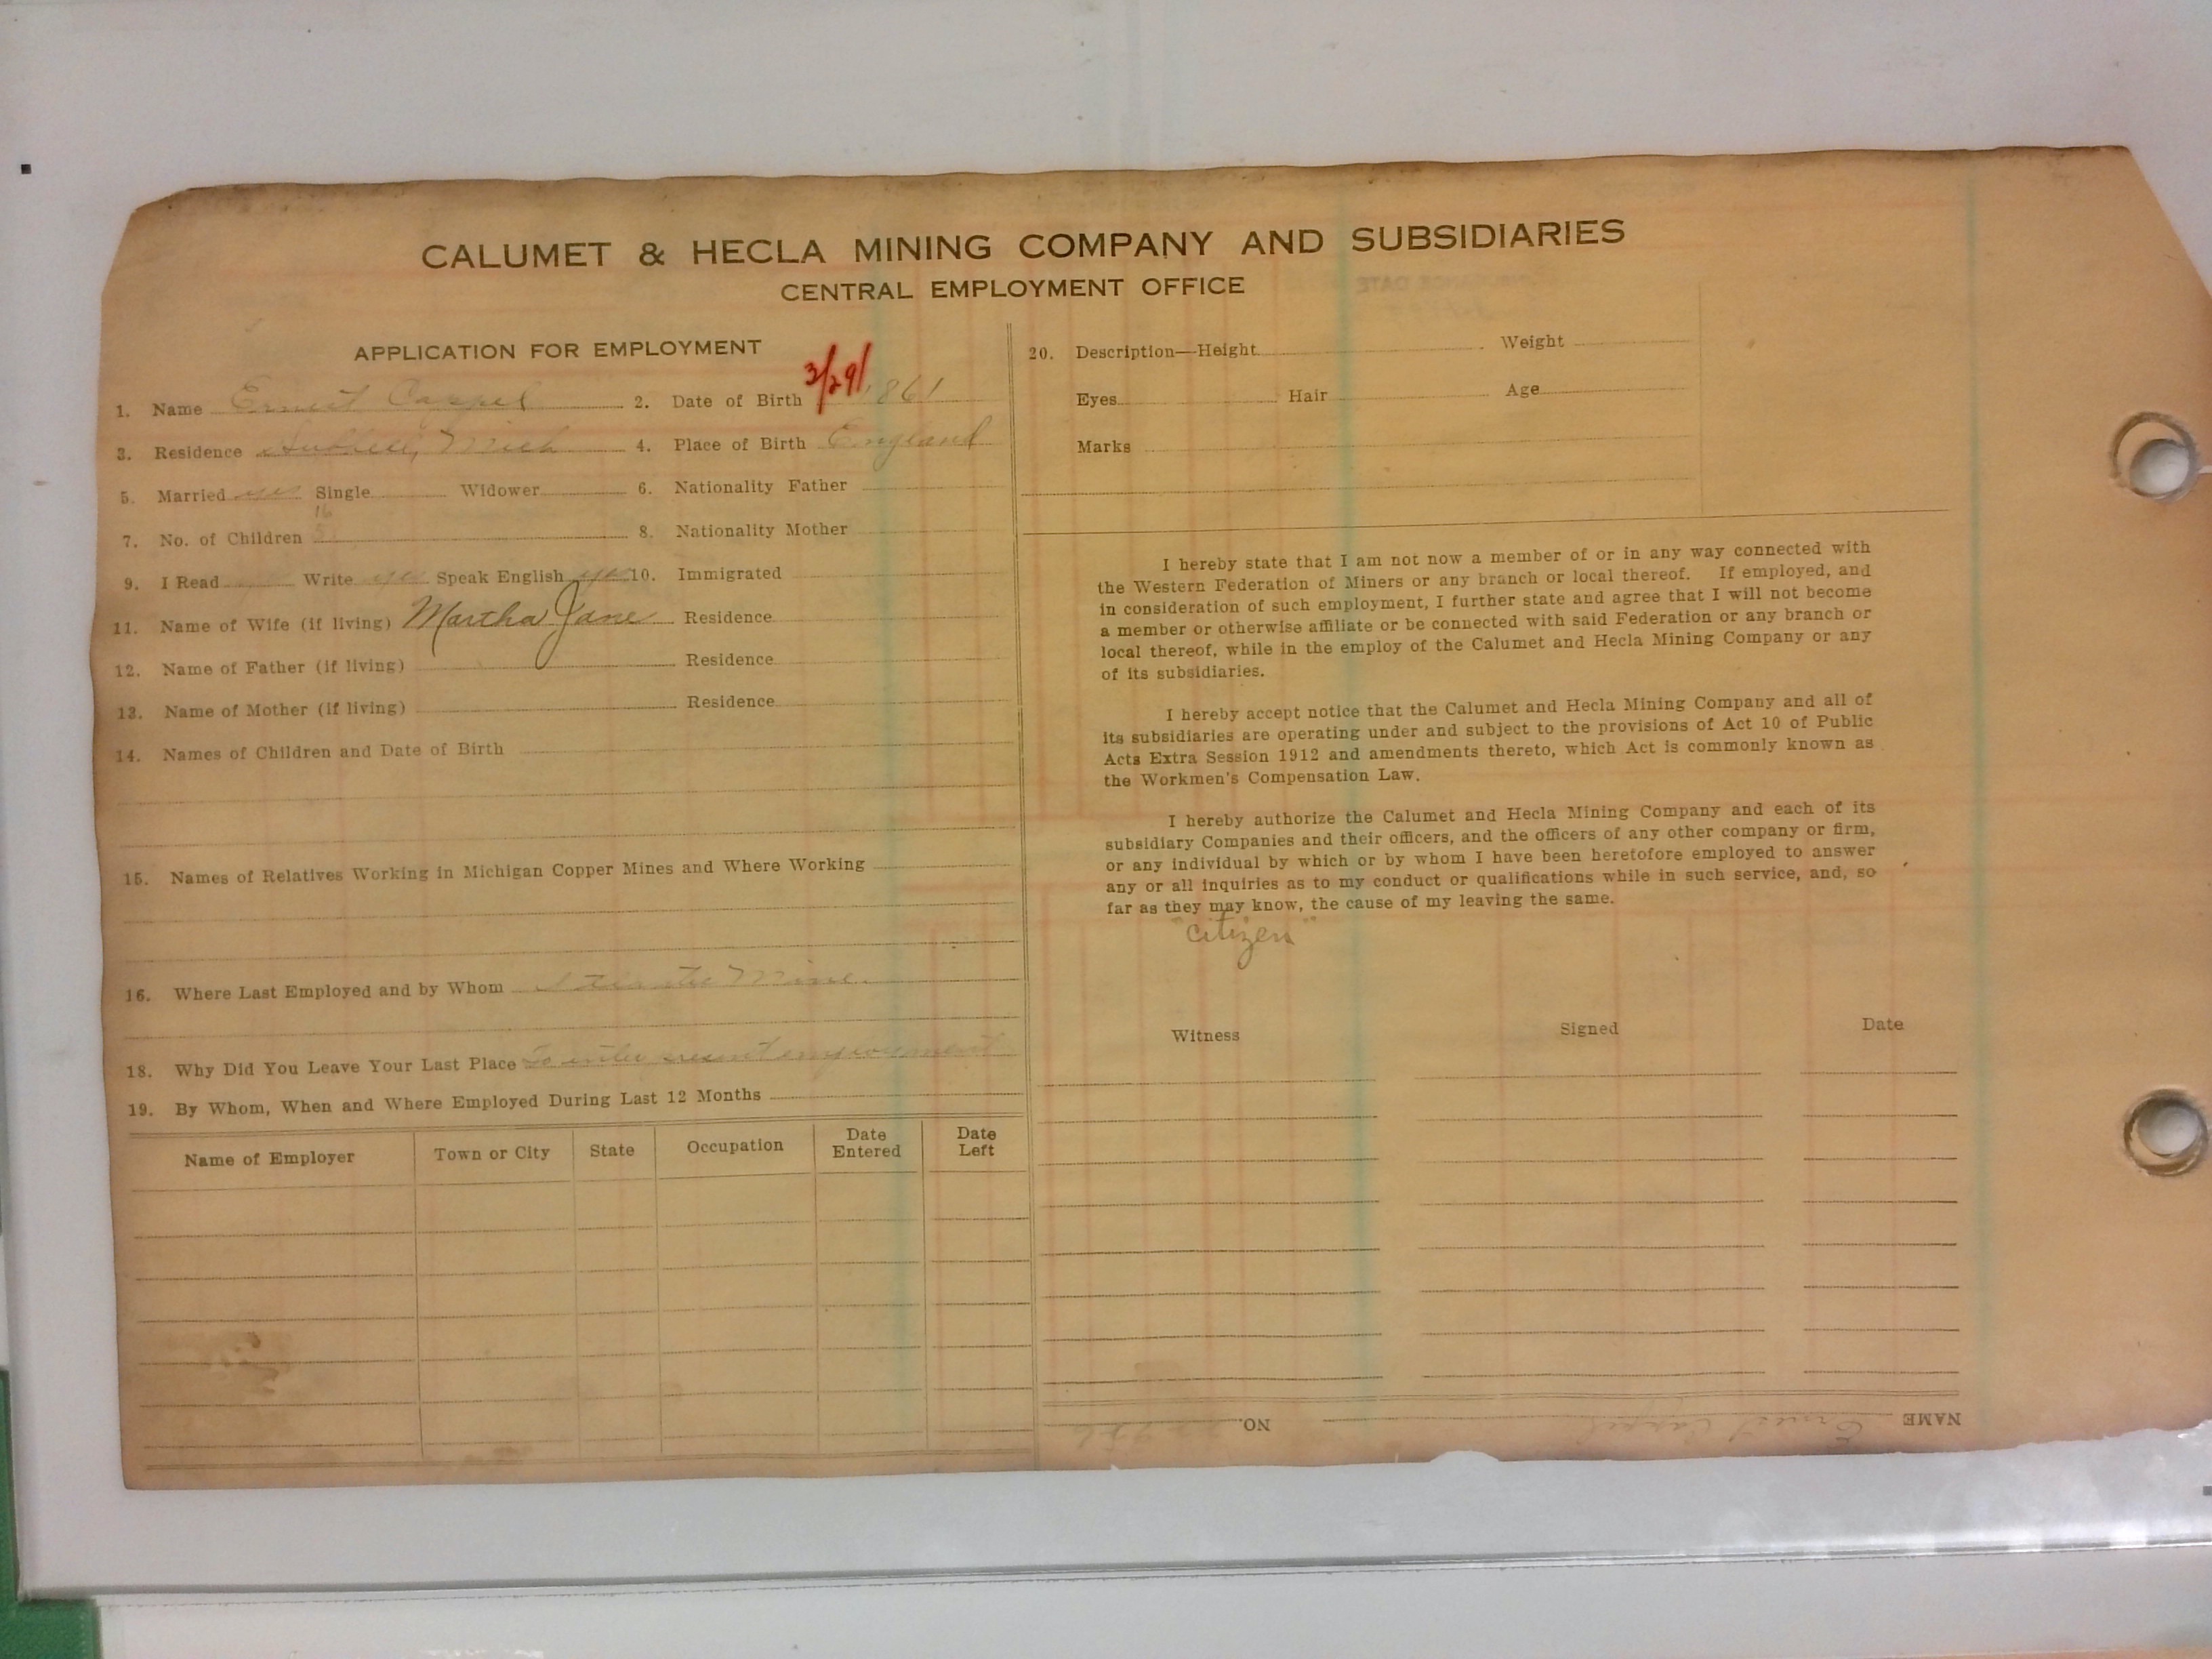 CALUMET & HECLA MINING COMPANY AND SUBSIDIARIES
CENTRAL EMPLOYMENT OFFICE
APPLICATION FOR EMPLOYMENT
1. Name Ernest 2. Date of Birth 3/29/1861
3. Residence Mich 4. Place of Birth England
5. Married yes Single Widower 6. Nationality Father
7. No. of Children 8. Nationality Mother
9. I Read Write yes Speak English yes 10. Immigrated
11. Name of Wife (if living) Martha Jane Residence
12. Name of Father (if living) Residence
13. Name of Mother (if living) Residence
14. Names of Children and Date of Birth
15. Names of Relatives Working in Michigan Copper Mines and Where Working
16. Where Last Employed and by Whom Mine.
18. Why Did You Leave Your Last Place To enter employment
19. By Whom, When and Where Employed During Last 12 Months
Name of Employer Town or City State Occupation Date Entered Date Left
20. Description—Height Weight
Eyes Hair Age
Marks
I hereby state that I am not now a member of or in any way connected with
the Western Federation of Miners or any branch or local thereof. If employed, and
in consideration of such employment, I further state and agree that I will not become
a member or otherwise affiliate or be connected with said Federation or any branch or
local thereof, while in the employ of the Calumet and Hecla Mining Company or any
of its subsidiaries.
I hereby accept notice that the Calumet and Hecla Mining Company and all of
its subsidiaries are operating under and subject to the provisions of Act 10 of Public
Acts Extra Session 1912 and amendments thereto, which Act is commonly known as
the Workmen's Compensation Law.
I hereby authorize the Calumet and Hecla Mining Company and each of its
subsidiary Companies and their officers, and the officers of any other company or firm,
or any individual by which or by whom I have been heretofore employed to answer
any or all inquiries as to my conduct or qualifications while in such service, and, so
far as they may know, the cause of my leaving the same.
"Citizen"
Witness Signed Date
NAME Ernest NO.